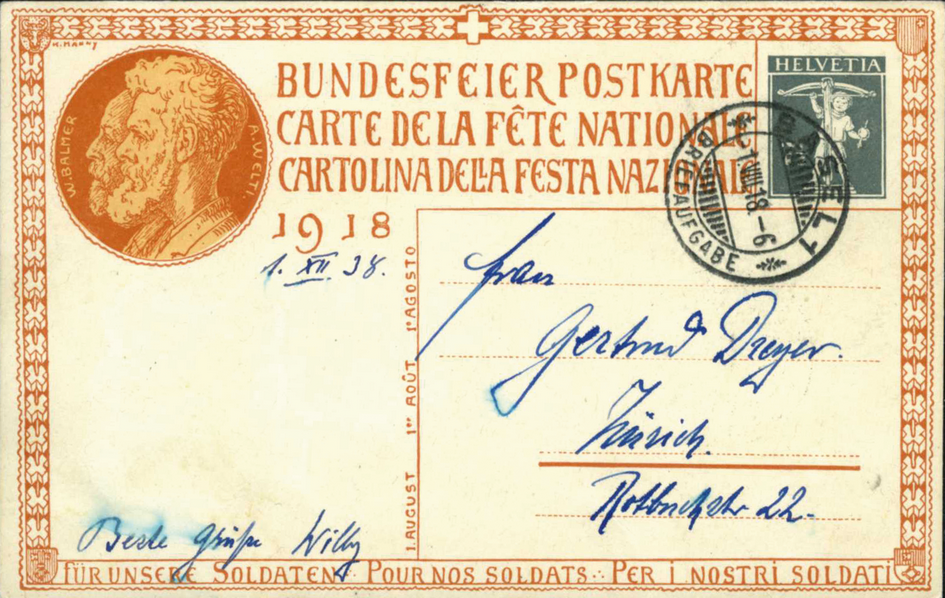 R. MARXY
BUNDESFEIER POSTKARTE
CARTE DE LA FÊTE NATIONALE
CARTOLINA DELLA FESTA NAZIONALE
1918
W. BALMER
A. WELTI
HELVETIA
BASEL 1
BRIEFAUFGABE
VIII.18.–6
1. XII 38.
Frau
Gertrud Dreyer.
Zürich.
Rotbuchstr 22.
1. AUGUST 1ER AOÛT 1º AGOSTO
Beste Grüße Willy
FÜR UNSERE SOLDATEN · POUR NOS SOLDATS · PER I NOSTRI SOLDATI